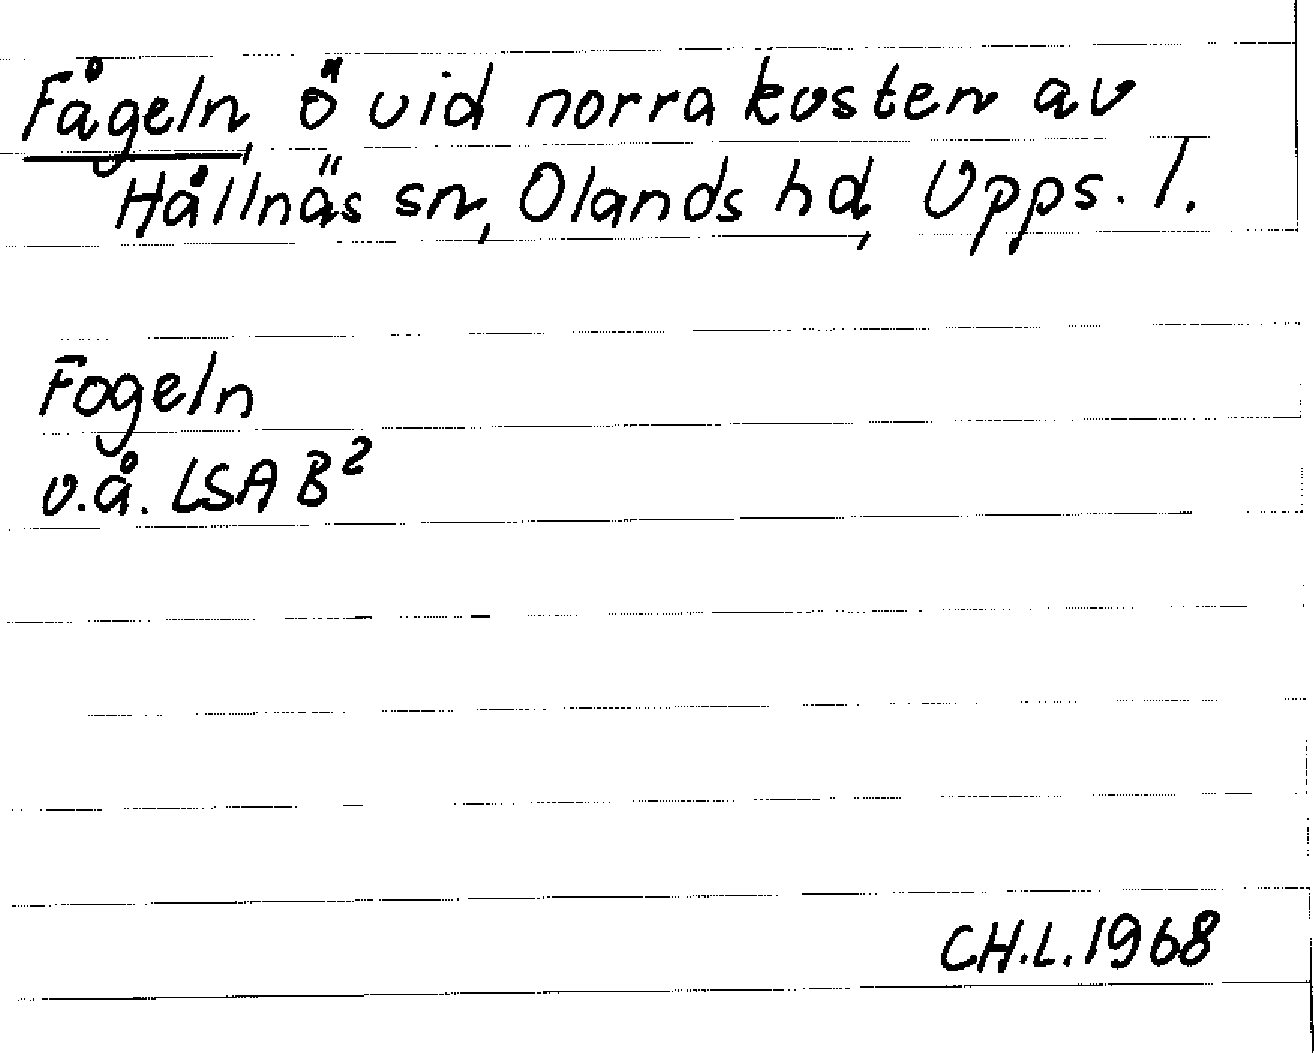 Fågeln, ö vid norra kusten av
Hållnäs sn, Olands hd, Upps. l.
Fogeln
u.å. LSA B²
CH.L. 1968